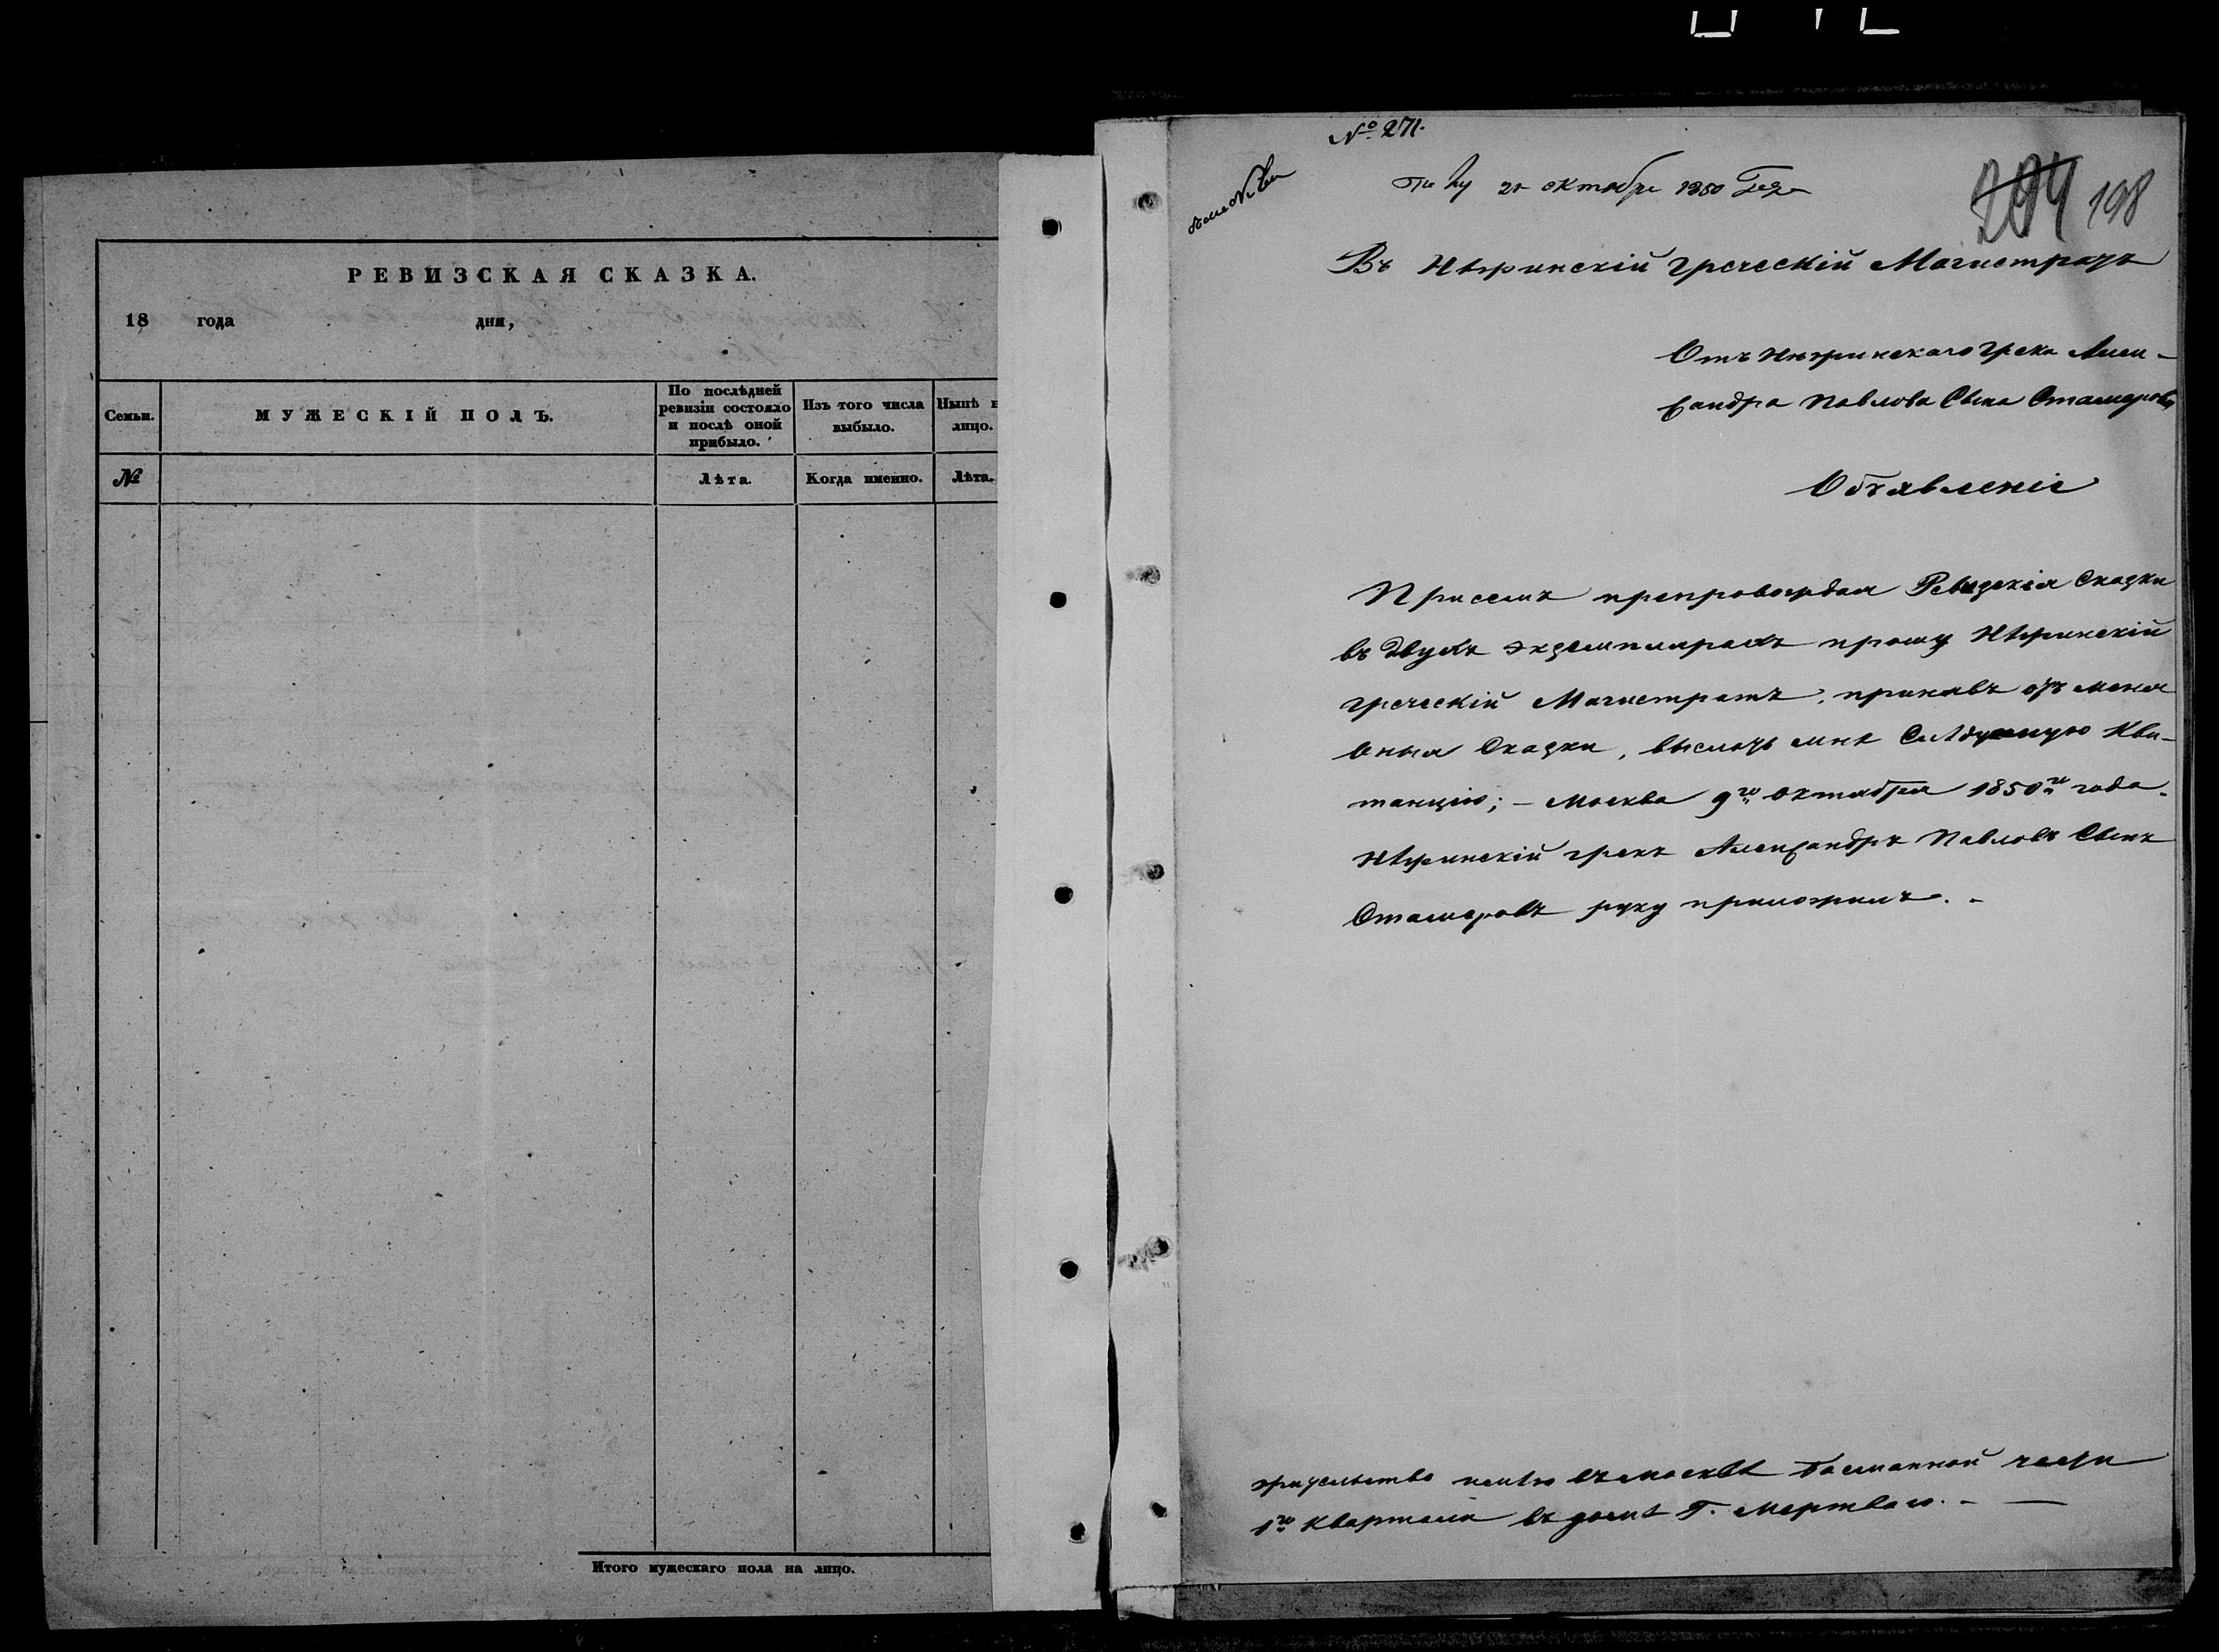 РЕВИЗСКАЯ СКАЗКА.
18 года дня,
Семьи.
МУЖЕСКІЙ ПОЛЪ.
По послѣдней
ревизіи состояло
и послѣ оной
прибыло.
Изъ того числа
выбыло.
Нынѣ н
лицо.
№
Лѣта.
Когда именно.
Лѣта.
Итого мужескаго пола на лицо.
№ 271.
21 октября 1850 года
294 198
Въ Нѣжинскій греческій Магистратъ
Отъ Нѣжинскаго Грека Алек-
сандра Павлова Сына
Объявленіе
При семъ препровождая Ревизскія Сказки
въ двухъ экземплярахъ прошу Нѣжинскій
греческій Магистратъ, принявъ отъ меня
оныя Сказки, выслать мнѣ Слѣдуемую Кви-
танцію; – Москва 9го октября 1850го года.
Нѣжинскій грекъ Александръ Павловъ Сынъ
руку приложилъ. –
жительство имѣю въ москвѣ Басманной части
1го Квартала въ домѣ Г. Мертваго. –